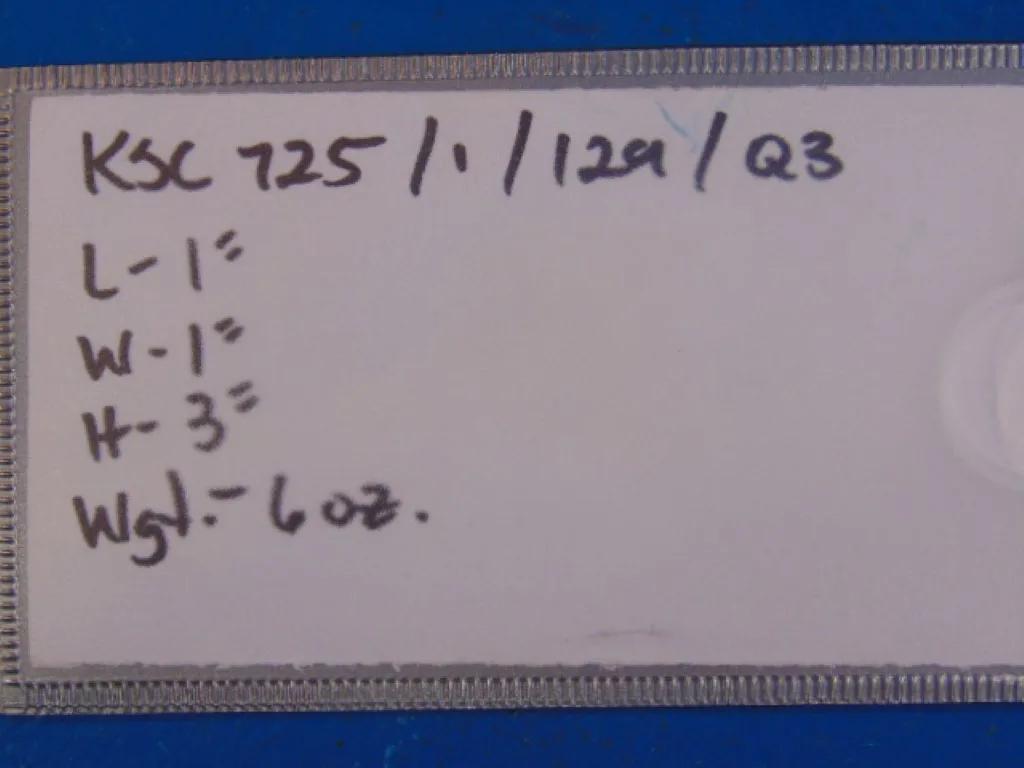 KSC 725 / 1 / 129 / Q3
L - 1"
W - 1"
H - 3"
Wgt. - 6 oz.